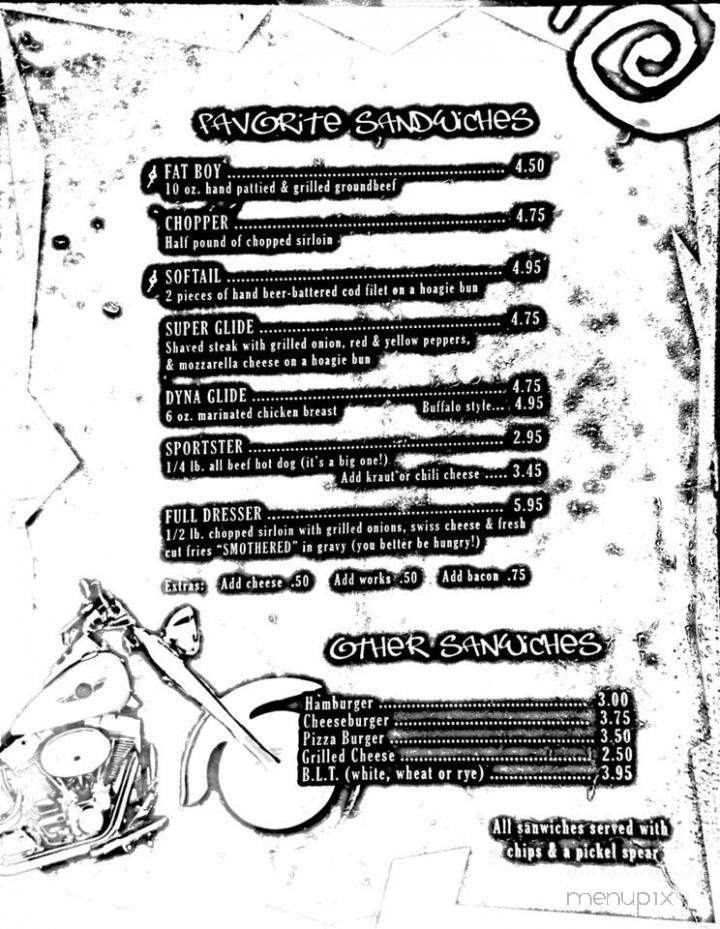 FAVORITE SANDWICHES
FAT BOY ........................................................ 4.50
10 oz. hand pattied & grilled groundbeef
CHOPPER ........................................................ 4.75
Half pound of chopped sirloin
SOFTAIL ........................................................ 4.95
2 pieces of hand beer-battered cod filet on a hoagie bun
SUPER GLIDE ................................................. 4.75
Shaved steak with grilled onion, red & yellow peppers,
& mozzarella cheese on a hoagie bun
DYNA GLIDE .................................................. 4.75
6 oz. marinated chicken breast Buffalo style... 4.95
SPORTSTER ................................................... 2.95
1/4 lb. all beef hot dog (it's a big one!)
Add kraut or chili cheese ..... 3.45
FULL DRESSER ............................................... 5.95
1/2 lb. chopped sirloin with grilled onions, swiss cheese & fresh
cut fries "SMOTHERED" in gravy (you better be hungry!)
Extras: Add cheese .50 Add works .50 Add bacon .75
OTHER SANWICHES
Hamburger ............................................. 3.00
Cheeseburger .......................................... 3.75
Pizza Burger ............................................ 3.50
Grilled Cheese .......................................... 2.50
B.L.T. (white, wheat or rye) ....................... 3.95
All sanwiches served with
chips & a pickel spear
menupix